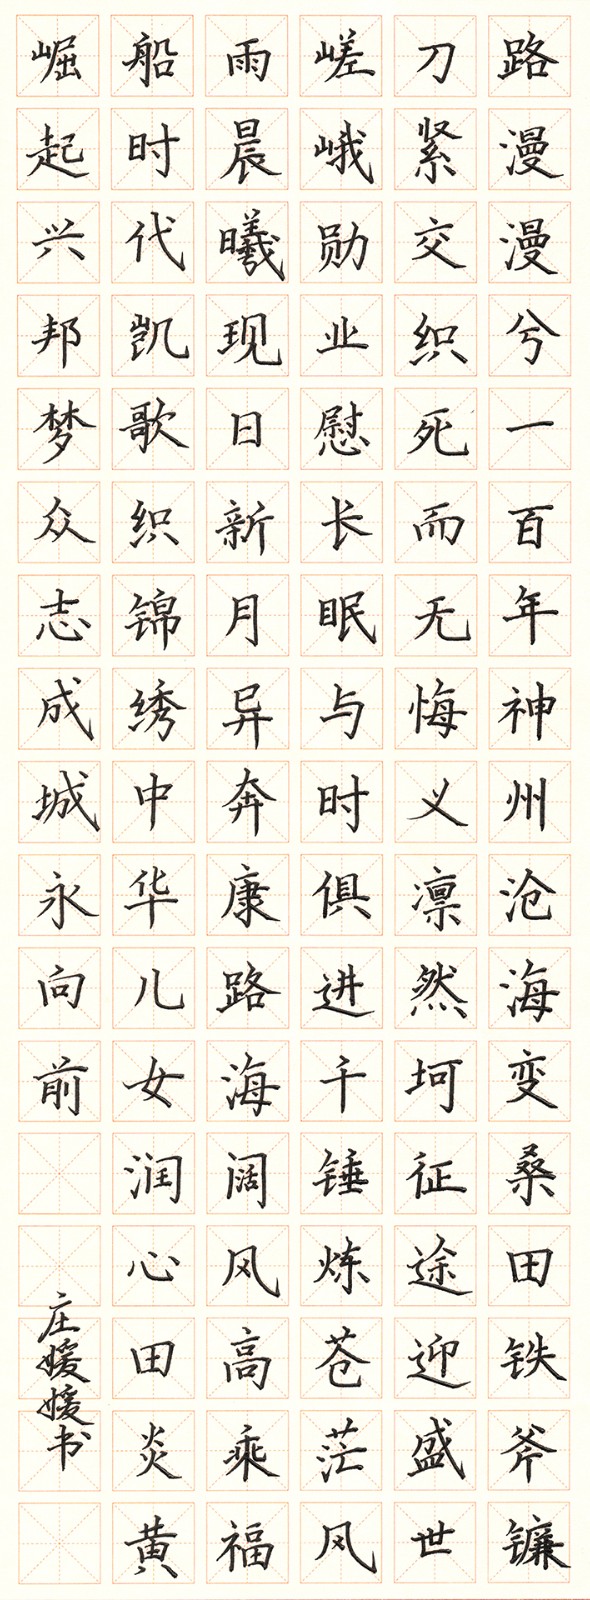 路漫漫兮一百年神州沧海变桑田铁斧镰
刀紧交织死而无悔义凛然坷征途迎盛世
嵯峨勋业慰长眠与时俱进千锤炼苍茫风
雨晨曦现日新月异奔康路海阔风高乘福
船时代凯歌织锦绣中华儿女润心田炎黄
崛起兴邦梦众志成城永向前
庄媛媛书